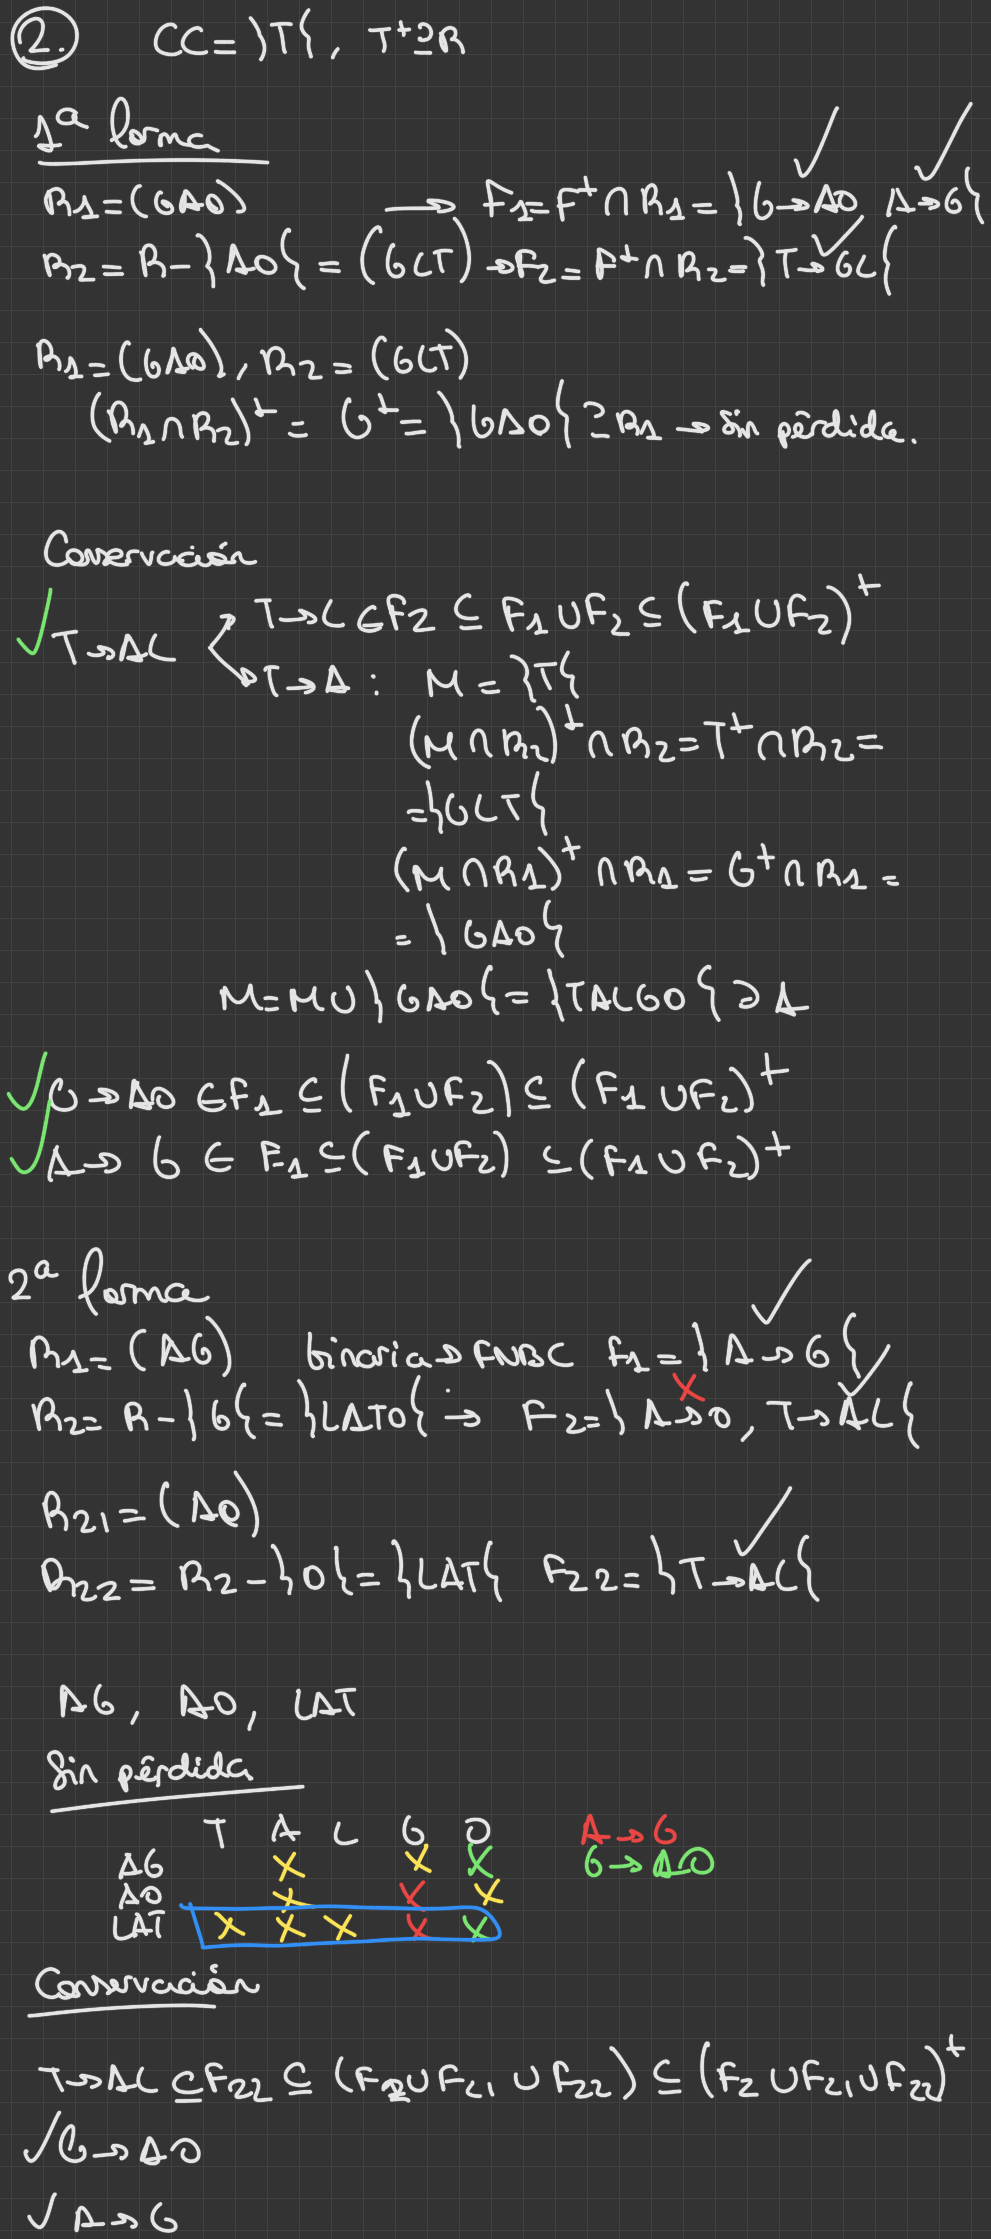 2. CC = }T{, T⁺ ⊇ R
1ª forma
R1 = (GAO) → F1 = F⁺ ∩ R1 = }G→AO, A→G{
R2 = R - }AO{ = (GLT) → F2 = F⁺ ∩ R2 = }T→GL{
R1 = (GAO), R2 = (GLT)
(R1 ∩ R2)⁺ = G⁺ = }GAO{ ⊇ R1 → Sin pérdida.
Conservación
✓ T→AL
T→L ∈ F2 ⊆ F1 ∪ F2 ⊆ (F1 ∪ F2)⁺
T→A : M = }T{
(M ∩ R2)⁺ ∩ R2 = T⁺ ∩ R2 =
= }GLT{
(M ∩ R1)⁺ ∩ R1 = G⁺ ∩ R1 =
= }GAO{
M = M ∪ }GAO{ = }TALGO{ ∋ A
✓ G→AO ∈ F1 ⊆ (F1 ∪ F2) ⊆ (F1 ∪ F2)⁺
✓ A→G ∈ F1 ⊆ (F1 ∪ F2) ⊆ (F1 ∪ F2)⁺
2ª forma
R1 = (AG) binaria → FNBC F1 = }A→G{
R2 = R - }G{ = }LATO{ → F2 = }A→O, T→AL{
R21 = (AO)
R22 = R2 - }O{ = }LAT{ F22 = }T→AL{
AG, AO, LAT
Sin pérdida
T A L G O A→G
AG X X X G→AO
AO X X X
LAT X X X X X
Conservación
T→AL ⊆ F22 ⊆ (F2 ∪ F21 ∪ F22) ⊆ (F2 ∪ F21 ∪ F22)⁺
✓ G→AO
✓ A→G